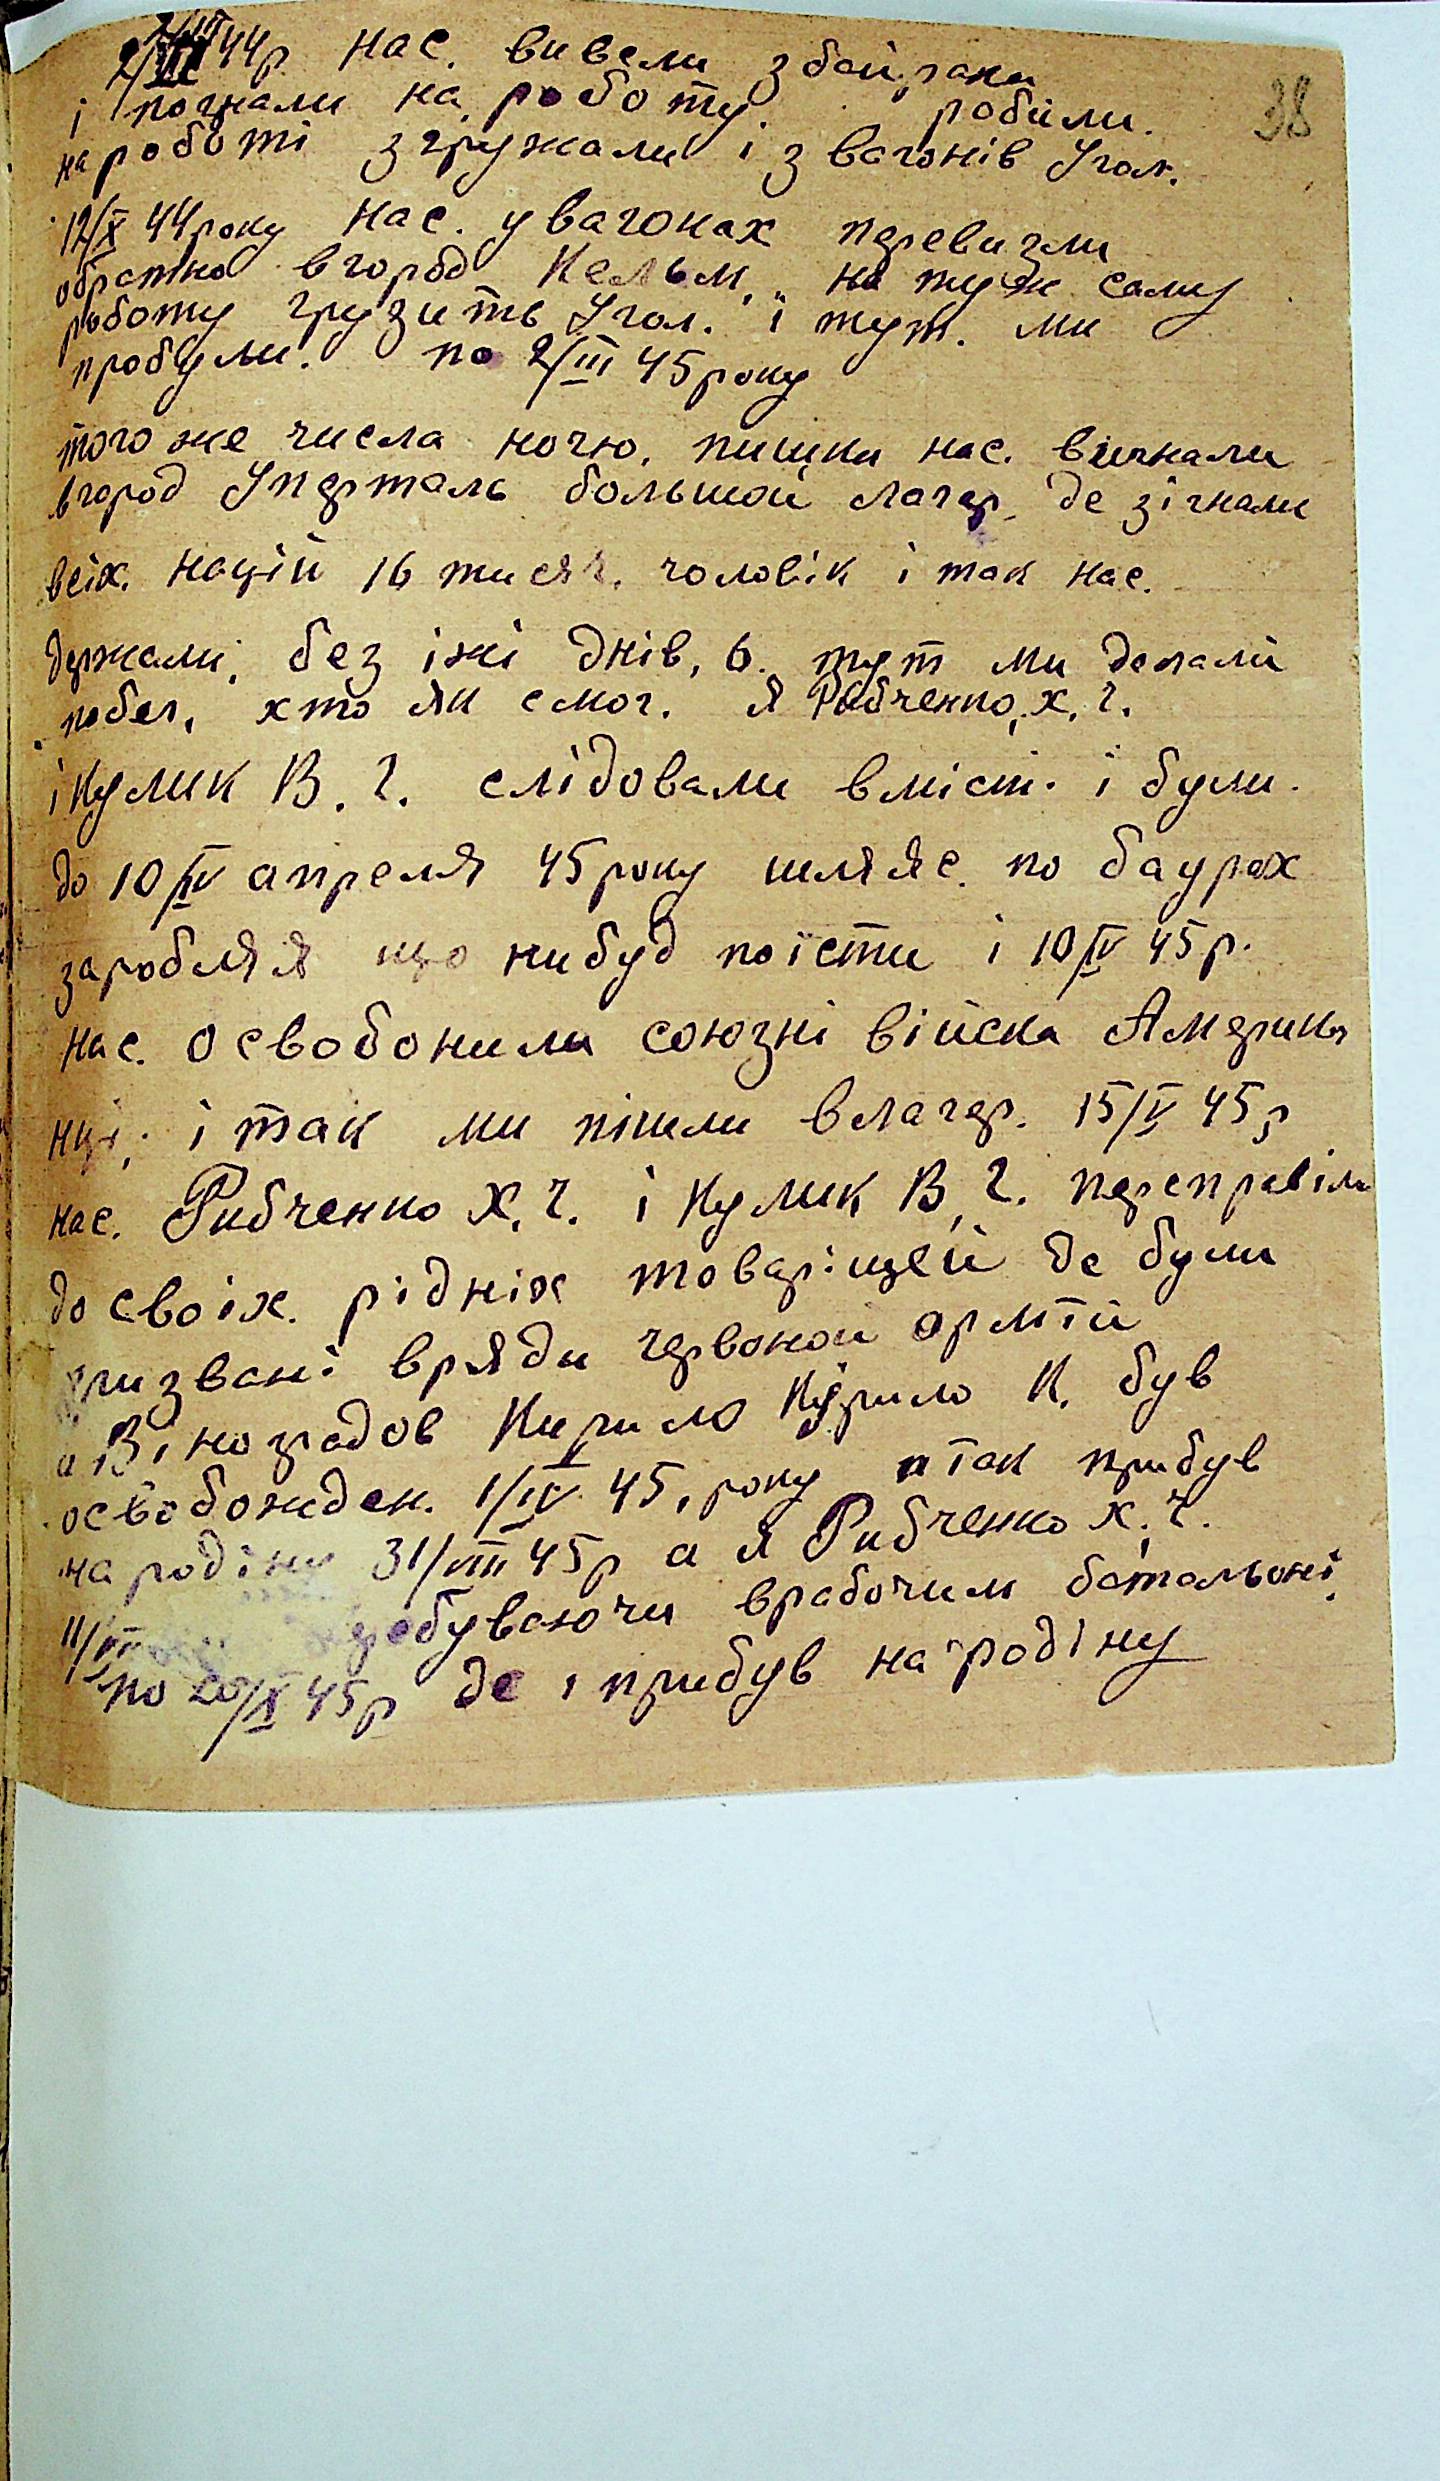 38
2/VIII 44р нас. вивели з байрака
і погнали на роботу. робили.
на роботі згружали і з вагонів Угол.
12/X 44 року нас. у вагонах перевизли
обратно в город Кельм, на туж саму
роботу грузить Угол. і тут. ми
пробули. по 2/III 45 року
того же числа ночю. пишки нас. вигнали
в город Упярталь большой лагер де зігнали
всіх. націй 16 тисяч. чоловік і так нас.
держали, без їжі днів, 6. тут ми делали
побег, хто як смог. Я Рибченко, Х. Г.
і Кулик В. Г. слідовали вміст. і були.
до 10/IV апреля 45 року шляяс. по баурах
заробляя що нибуд поїсти і 10/IV 45 р.
нас. освобонили союзні війска Америка
нці. і так ми пішли в лагер. 15/V 45 р
нас. Рибченко Х. Г. і Кулик В. Г. переправіли
до своіх. рідніх товаріщей де були
призвані вряди червоной армій
а Віноградов Кирило К. був
освобожден. 1/IV 45, року а так прибув
на родіну 31/VIII 45 р а я Рибченко Х. Г.
11/VII пребуваючи врабочим батальоні
по 20/X 45 р де і прибув на родіну